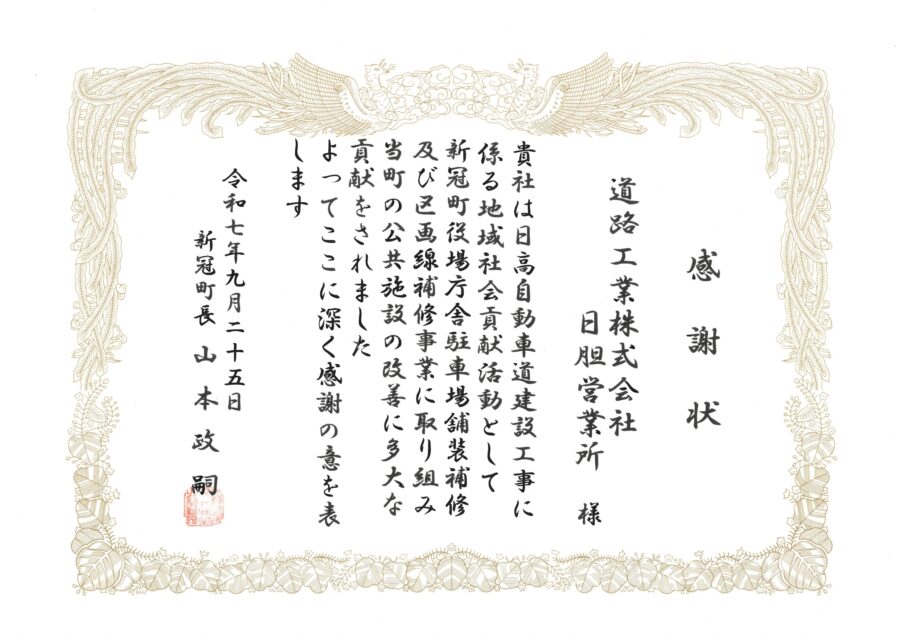 感謝状
道路工業株式会社
日胆営業所 様
貴社は日高自動車道建設工事に
係る地域社会貢献活動として
新冠町役場庁舎駐車場舗装補修
及び区画線補修事業に取り組み
当町の公共施設の改善に多大な
貢献をされました
よってここに深く感謝の意を表
します
令和七年九月二十五日
新冠町長 山本政嗣